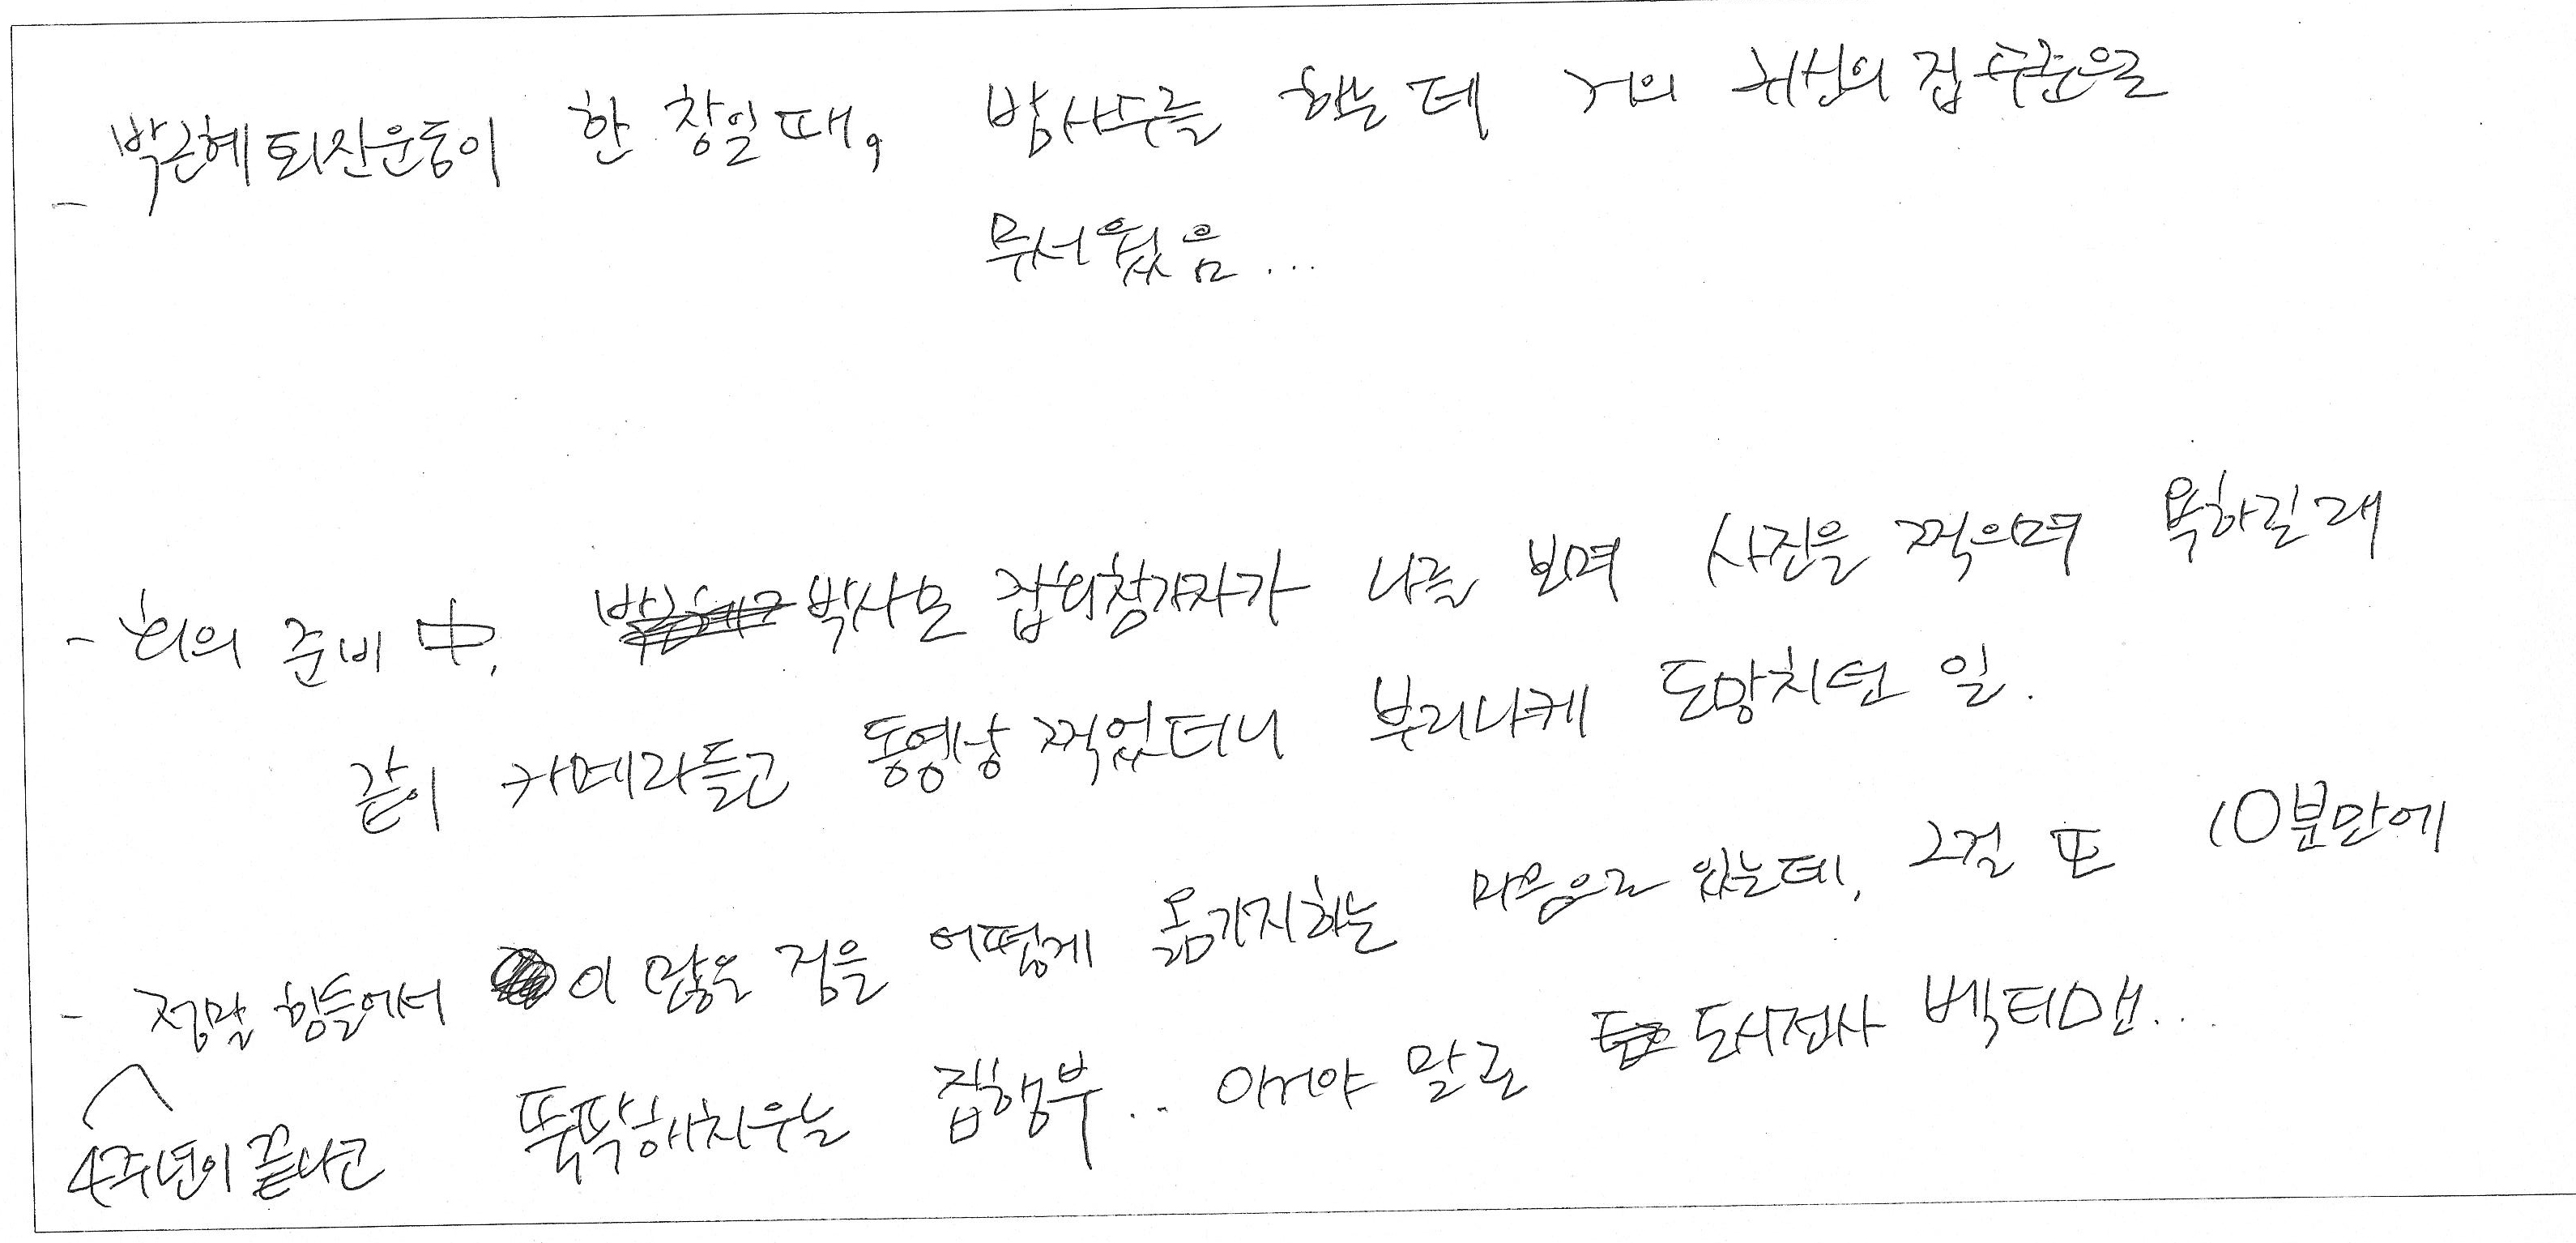 - 박근혜퇴진운동이 한창일때, 밤사수를 하는데 거의 귀신의 집 수준으로
무서웠음...
- 회의 준비 中, 박사모 집회참가자가 나를 보며 사진을 찍으며 욕하길래
같이 카메라들고 동영상 찍었더니 부리나케 도망치던 일.
- 정말 힘들어서 이 많은 짐을 어떻게 옮기지하는 마음으로 있는데, 그걸 또 10분만에
4주년이 끝나고 뚝딱해치우는 집행부.. 이거야 말로 도시전사 벡터맨...